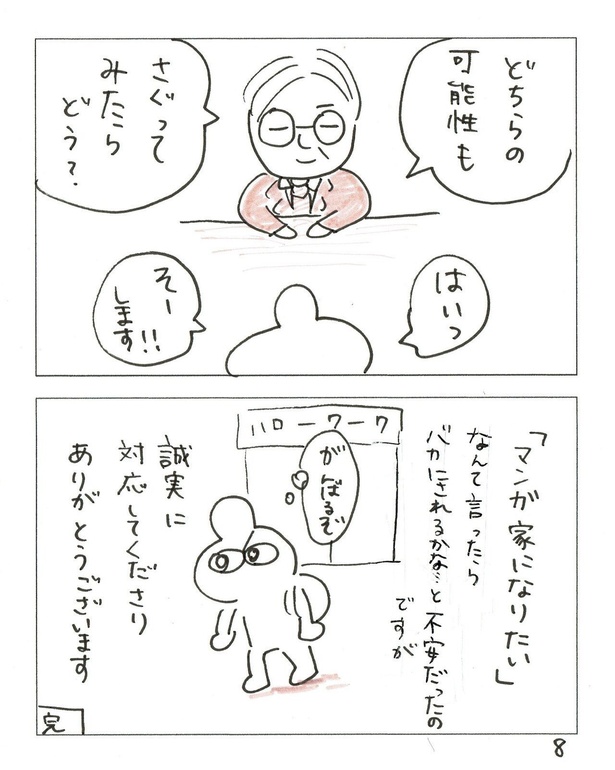 どちらの
可能性も
さぐって
みたら
どう?
はいっ
そー
します!!
「マンガ家になりたい」
なんて言ったら
バカにされるかな…と不安だったの
ですが
ハローワーク
がんばるぞ
誠実に
対応してくださり
ありがとうございます
完
8